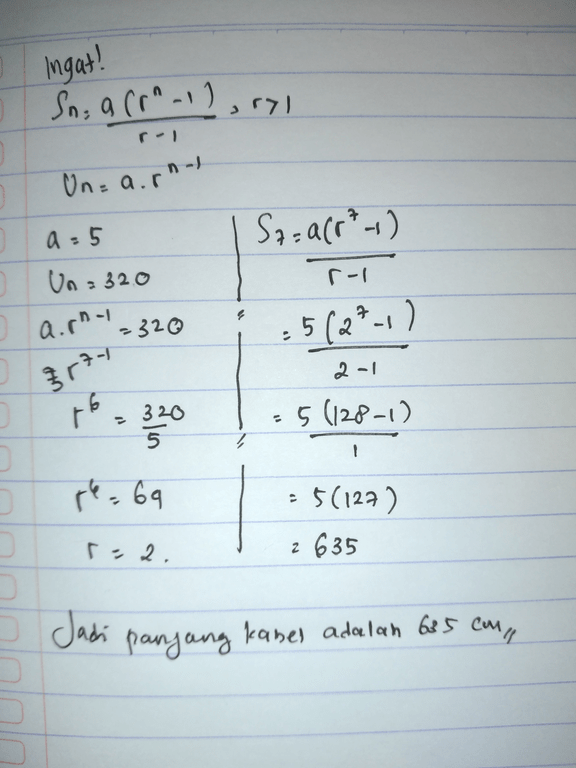 Ingat!
Sn = a(r^n - 1) / r - 1 , r > 1
Un = a . r^n-1
a = 5
Un = 320
a . r^n-1 = 320
r^7-1
r^6 = 320 / 5
r^6 = 64
r = 2.
S7 = a(r^7 - 1) / r - 1
= 5(2^7 - 1) / 2 - 1
= 5(128 - 1) / 1
= 5(127)
= 635
Jadi panjang kabel adalah 635 cm